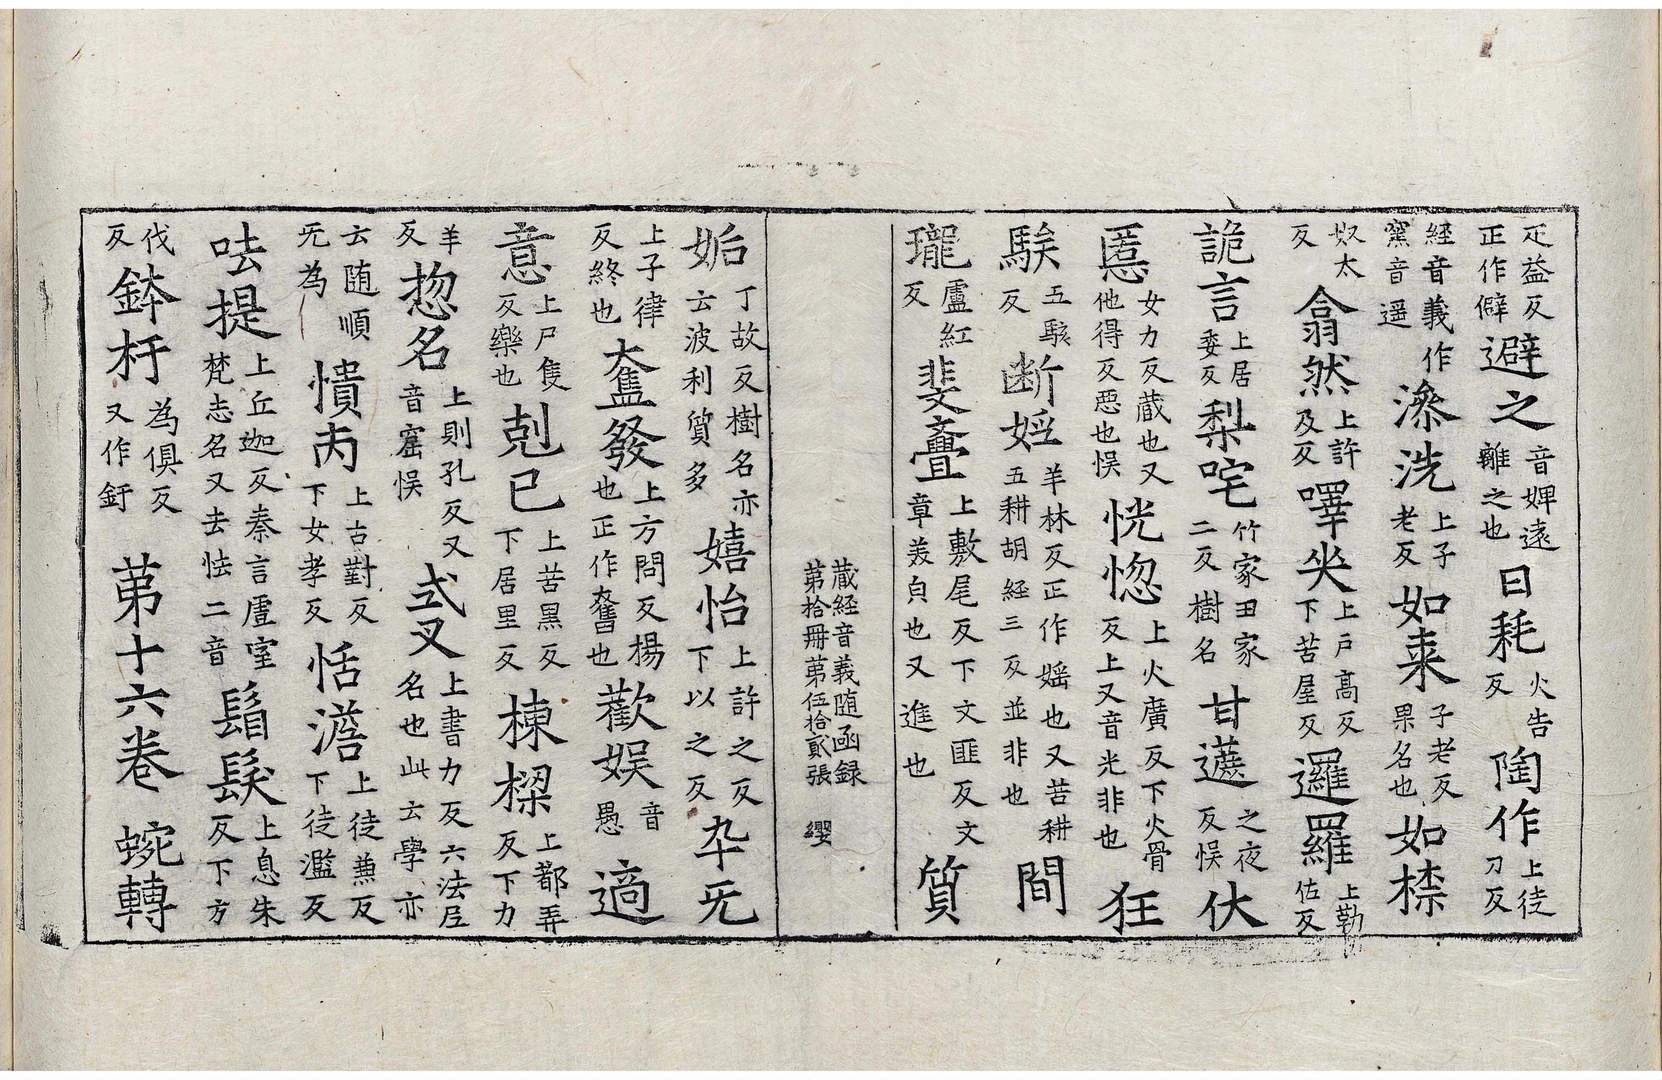 疋益反正作僻避之音婢遠離之也曰耗火告反陶作上徒刀反
経音義作窯音遥㵕洗上子老反如来子老反果名也如㯲
奴太反翕然上許及反嘷㘴上戶高反下苦屋反邏羅上勒佐反
詭言上居委反梨咤竹家田家二反樹名甘蔗之夜反悮伏
慝女力反蔵也又他得反惡也悮恍惚上火廣反下火骨反上又音光非也狂
騃五駭反断婬羊林反正作婬也又苦耕五耕胡経三反並非也間
瓏盧紅反斐亹上敷尾反下文匪反文章美皃也又進也質
蔵経音義随函録
第拾冊第伍拾貳張 纓
妬丁故反樹名亦云波利質多嬉怡上許之反下以之反卒旡
上子律反終也奮發上方問反楊也正作奮也歡娱音愚適
意上尸隻反樂也剋已上苦黑反下居里反棟樑上都弄反下力
羊反惣名上則孔反又音窟悮式叉上書力反六法尼名也此云學亦
云随順旡為憒丙上古對反下女孝反恬澹上徒兼反下徒濫反
呿提上丘迦反秦言虚空梵志名又去怯二音鬚髮上息朱反下方
伐反鉢杅為俱反又作釪 第十六卷 蜿轉